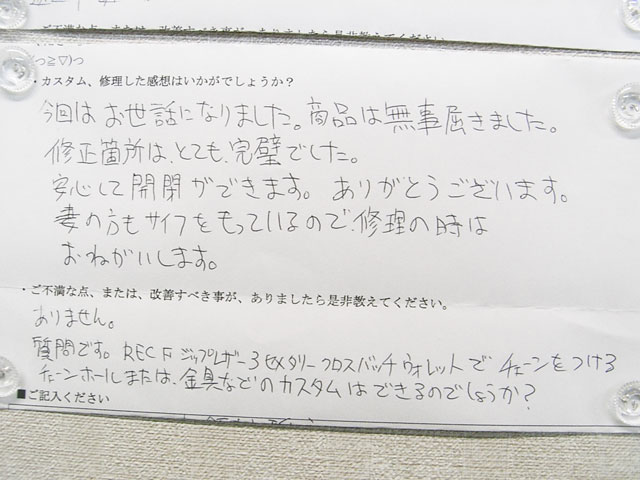 っ≧▽)っ
・カスタム、修理した感想はいかがでしょうか？
今回はお世話になりました。商品は無事届きました。
修正箇所は、とても、完璧でした。
安心して開閉ができます。ありがとうございます。
妻の方もサイフをもっているので、修理の時は
おねがいします。
・ご不満な点、または、改善すべき事が、ありましたら是非教えてください。
ありません。
質問です。RECF ジップレザー3 クロスパッチウォレットで チェーンをつける
チェーンホールまたは、金具などでのカスタムはできるのでしょうか？
■ご記入ください